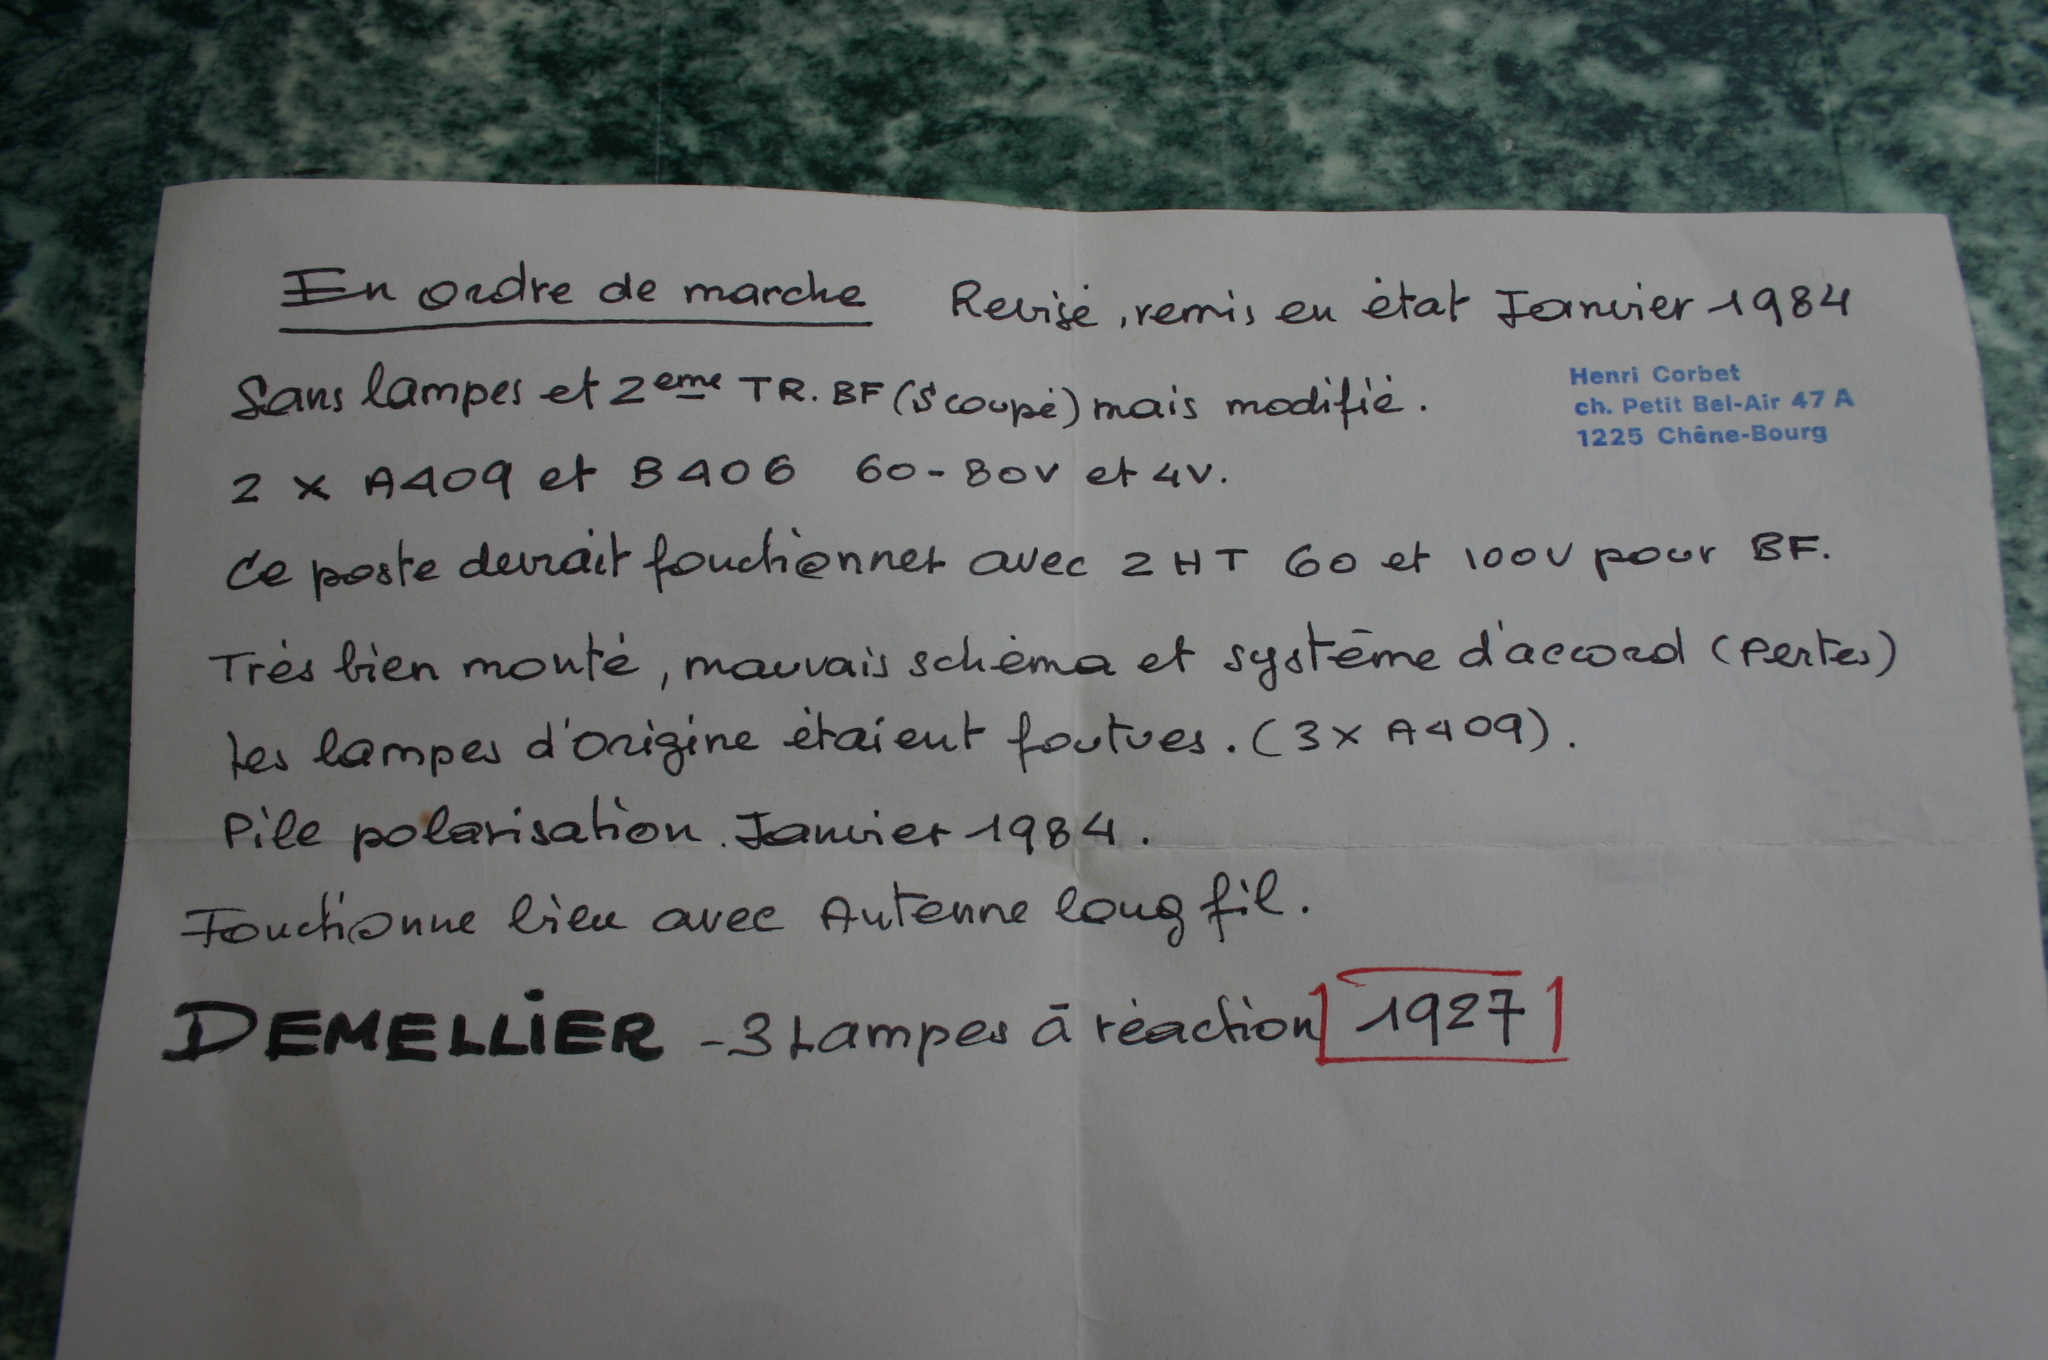 En ordre de marche Revisé, remis en état Janvier 1984
Henri Corbet
ch. Petit Bel-Air 47 A
1225 Chêne-Bourg
Sans lampes et 2eme TR. BF (S coupé) mais modifié.
2 x A409 et B406 60-80V et 4V.
Ce poste devrait fonctionner avec 2 HT 60 et 100V pour BF.
Très bien monté, mauvais schéma et système d'accord (Pertes)
Les lampes d'origine étaient foutues. (3x A409).
Pile polarisation. Janvier 1984.
Fonctionne bien avec Antenne long fil.
DEMELLIER - 3 Lampes à réaction 1927